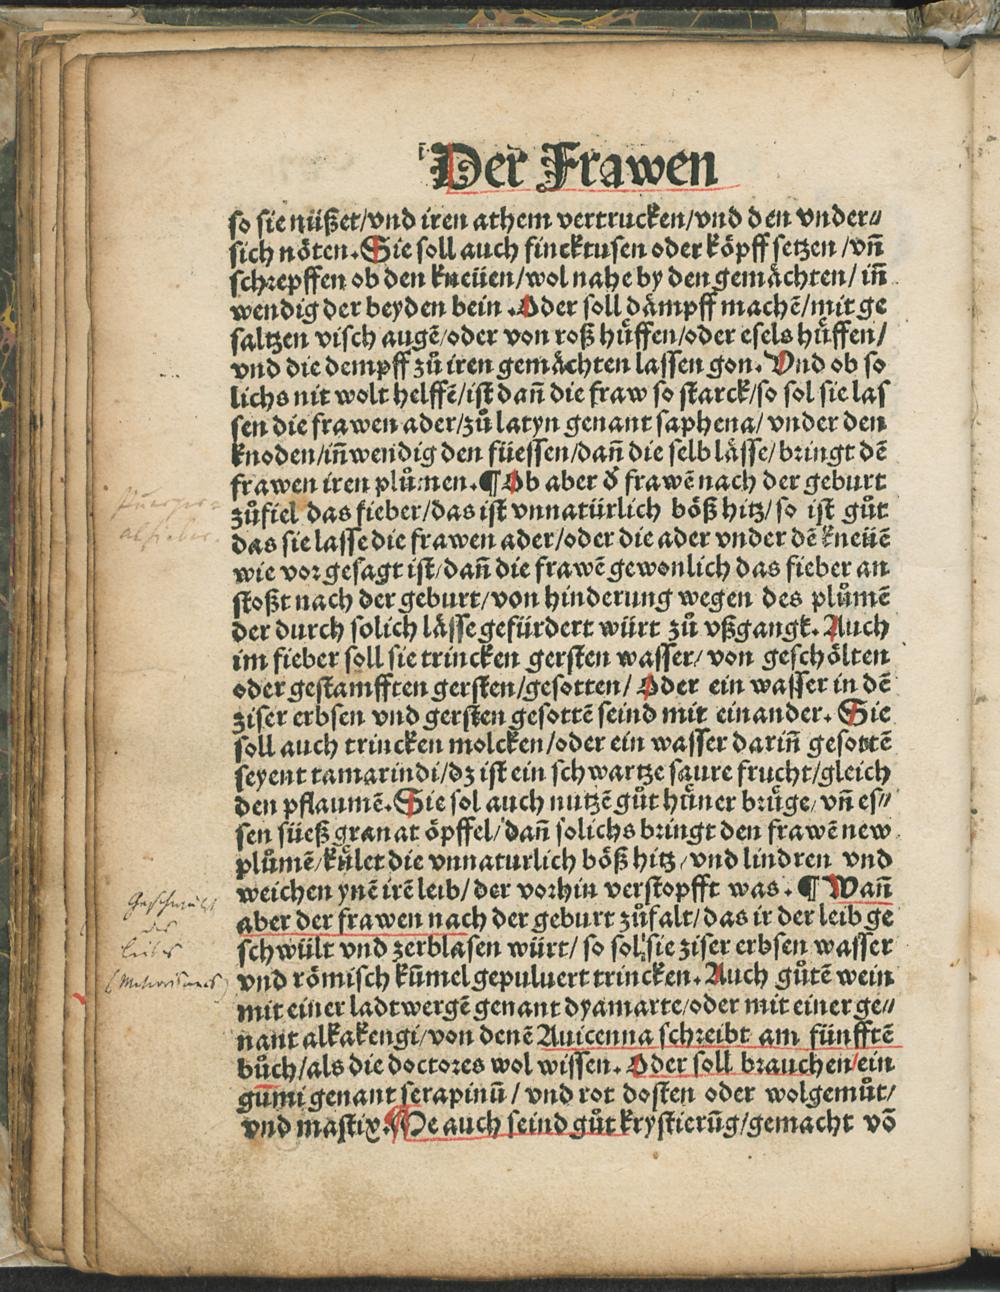 Der Frawen
so sie nüßet/vnd iren athem vertrucken/vnd den vnder⸗
sich nöten. Sie soll auch fincktusen oder köpff setzen /vn̄
schrepffen ob den kneüen/wol nahe by den gemächten/ in̄
wendig der beyden bein. Oder soll dämpff machē/mit ge
saltzen visch augē/oder von roß hüffen/oder esels hüffen/
vnd die dempff zů iren gemächten lassen gon. Vnd ob so
lichs nit wolt helffē/ist dan̄ die fraw so starck/so sol sie las
sen die frawen ader/zů latyn genant saphena/ vnder den
knoden/in̄wendig den füessen/dan̄ die selb lässe/bringt dē
frawen iren plůmen. ¶ Ob aber d̕ frawē nach der geburt
zůfiel das fieber/das ist vnnatürlich böß hitz/so ist gůt
das sie lasse die frawen ader/oder die ader vnder dē kneüē
wie vorgesagt ist/dan̄ die frawē gewonlich das fieber an
stoßt nach der geburt/von hinderung wegen des plůmē
der durch solich lässe gefürdert würt zů vßgangk. Auch
im fieber soll sie trincken gersten wasser/ von geschölten
oder gestamfften gersten/gesotten/ Oder ein wasser in dē
ziser erbsen vnd gersten gesottē seind mit einander. Sie
soll auch trincken molcken/oder ein wasser darin̄ gesottē
seyent tamarindi/dz ist ein schwartze saure frucht/gleich
den pflaumē. Sie sol auch nutzē gůt hüner brüge/vn̄ es⸗
sen süeß granat öpffel/dan̄ solichs bringt den frawē new
plůmē/kület die vnnaturlich böß hitz/vnd lindren vnd
weichen ynē irē leib/der vorhin verstopfft was. ¶ Wan̄
aber der frawen nach der geburt zůfalt/das ir der leib ge
schwült vnd zerblasen würt/ so sol sie ziser erbsen wasser
vnd römisch kūmel gepuluert trincken. Auch gůtē wein
mit einer ladtwergē genant dyamarte/oder mit einer ge⸗
nant alkakengi/von denē Auicenna schreibt am fünfftē
bůch/als die doctores wol wissen. Oder soll brauchen/ein
gūmi genant serapinū/ vnd rot dosten oder wolgemůt/
vnd mastix. ¶ Me auch seind gůt krystierūg/gemacht vō
Geschwulst
des
Leibes
(Meteorismus)